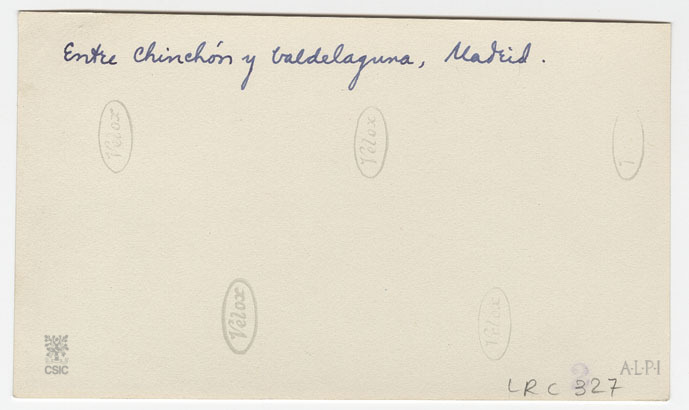 Entre Chinchón y Valdelaguna, Madrid.
Velox
Velox
V
Velox
Velox
CSIC
A·L·P·I
LRC 327